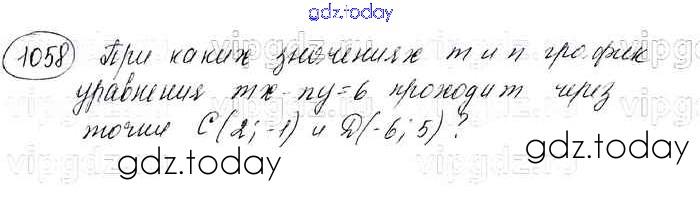 gdz.today
1058 При каких значениях m и n график
уравнения mx - ny = 6 проходит через
точки C(2; -1) и D(-6; 5)?
gdz.today
gdz.today